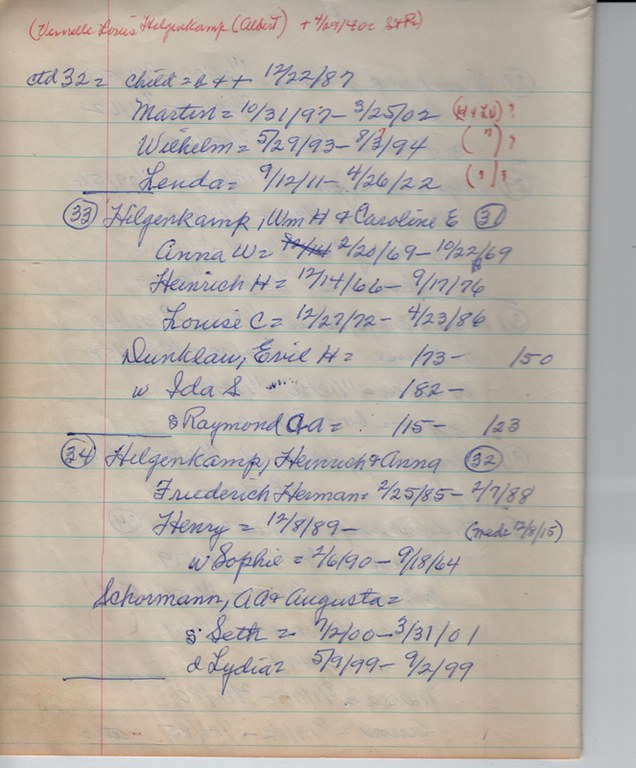 Louis Hilgenkamp (Albert) +
ctd 32 = child = b & + 12/22/87
Martin = 10/31/97 - 3/25/02 (H & Lo) ?
Wilhelm = 5/29/93 - 8/3/94 ( " ) ?
Lenda = 9/12/11 - 4/26/22 ( " ) ?
(33) Hilgenkamp, Wm H & Caroline E (31)
Anna W = 2/20/69 - 10/22/69
Heinrich H = 12/14/66 - 9/17/76
Louise C = 12/27/72 - 4/23/86
Dunklau, Emil H = /73 - /50
w Ida S /82 -
s Raymond = /15 - /23
(34) Hilgenkamp, Heinrich & Anna (32)
Friederich Herman = 2/25/85 - 2/7/88
Henry = 12/8/89 - (made 12/8/15)
w Sophie = 2/6/90 - 9/18/64
Schormann, AA & Augusta =
s Seth = 7/2/00 - 3/31/01
d Lydia = 5/9/99 - 9/2/99